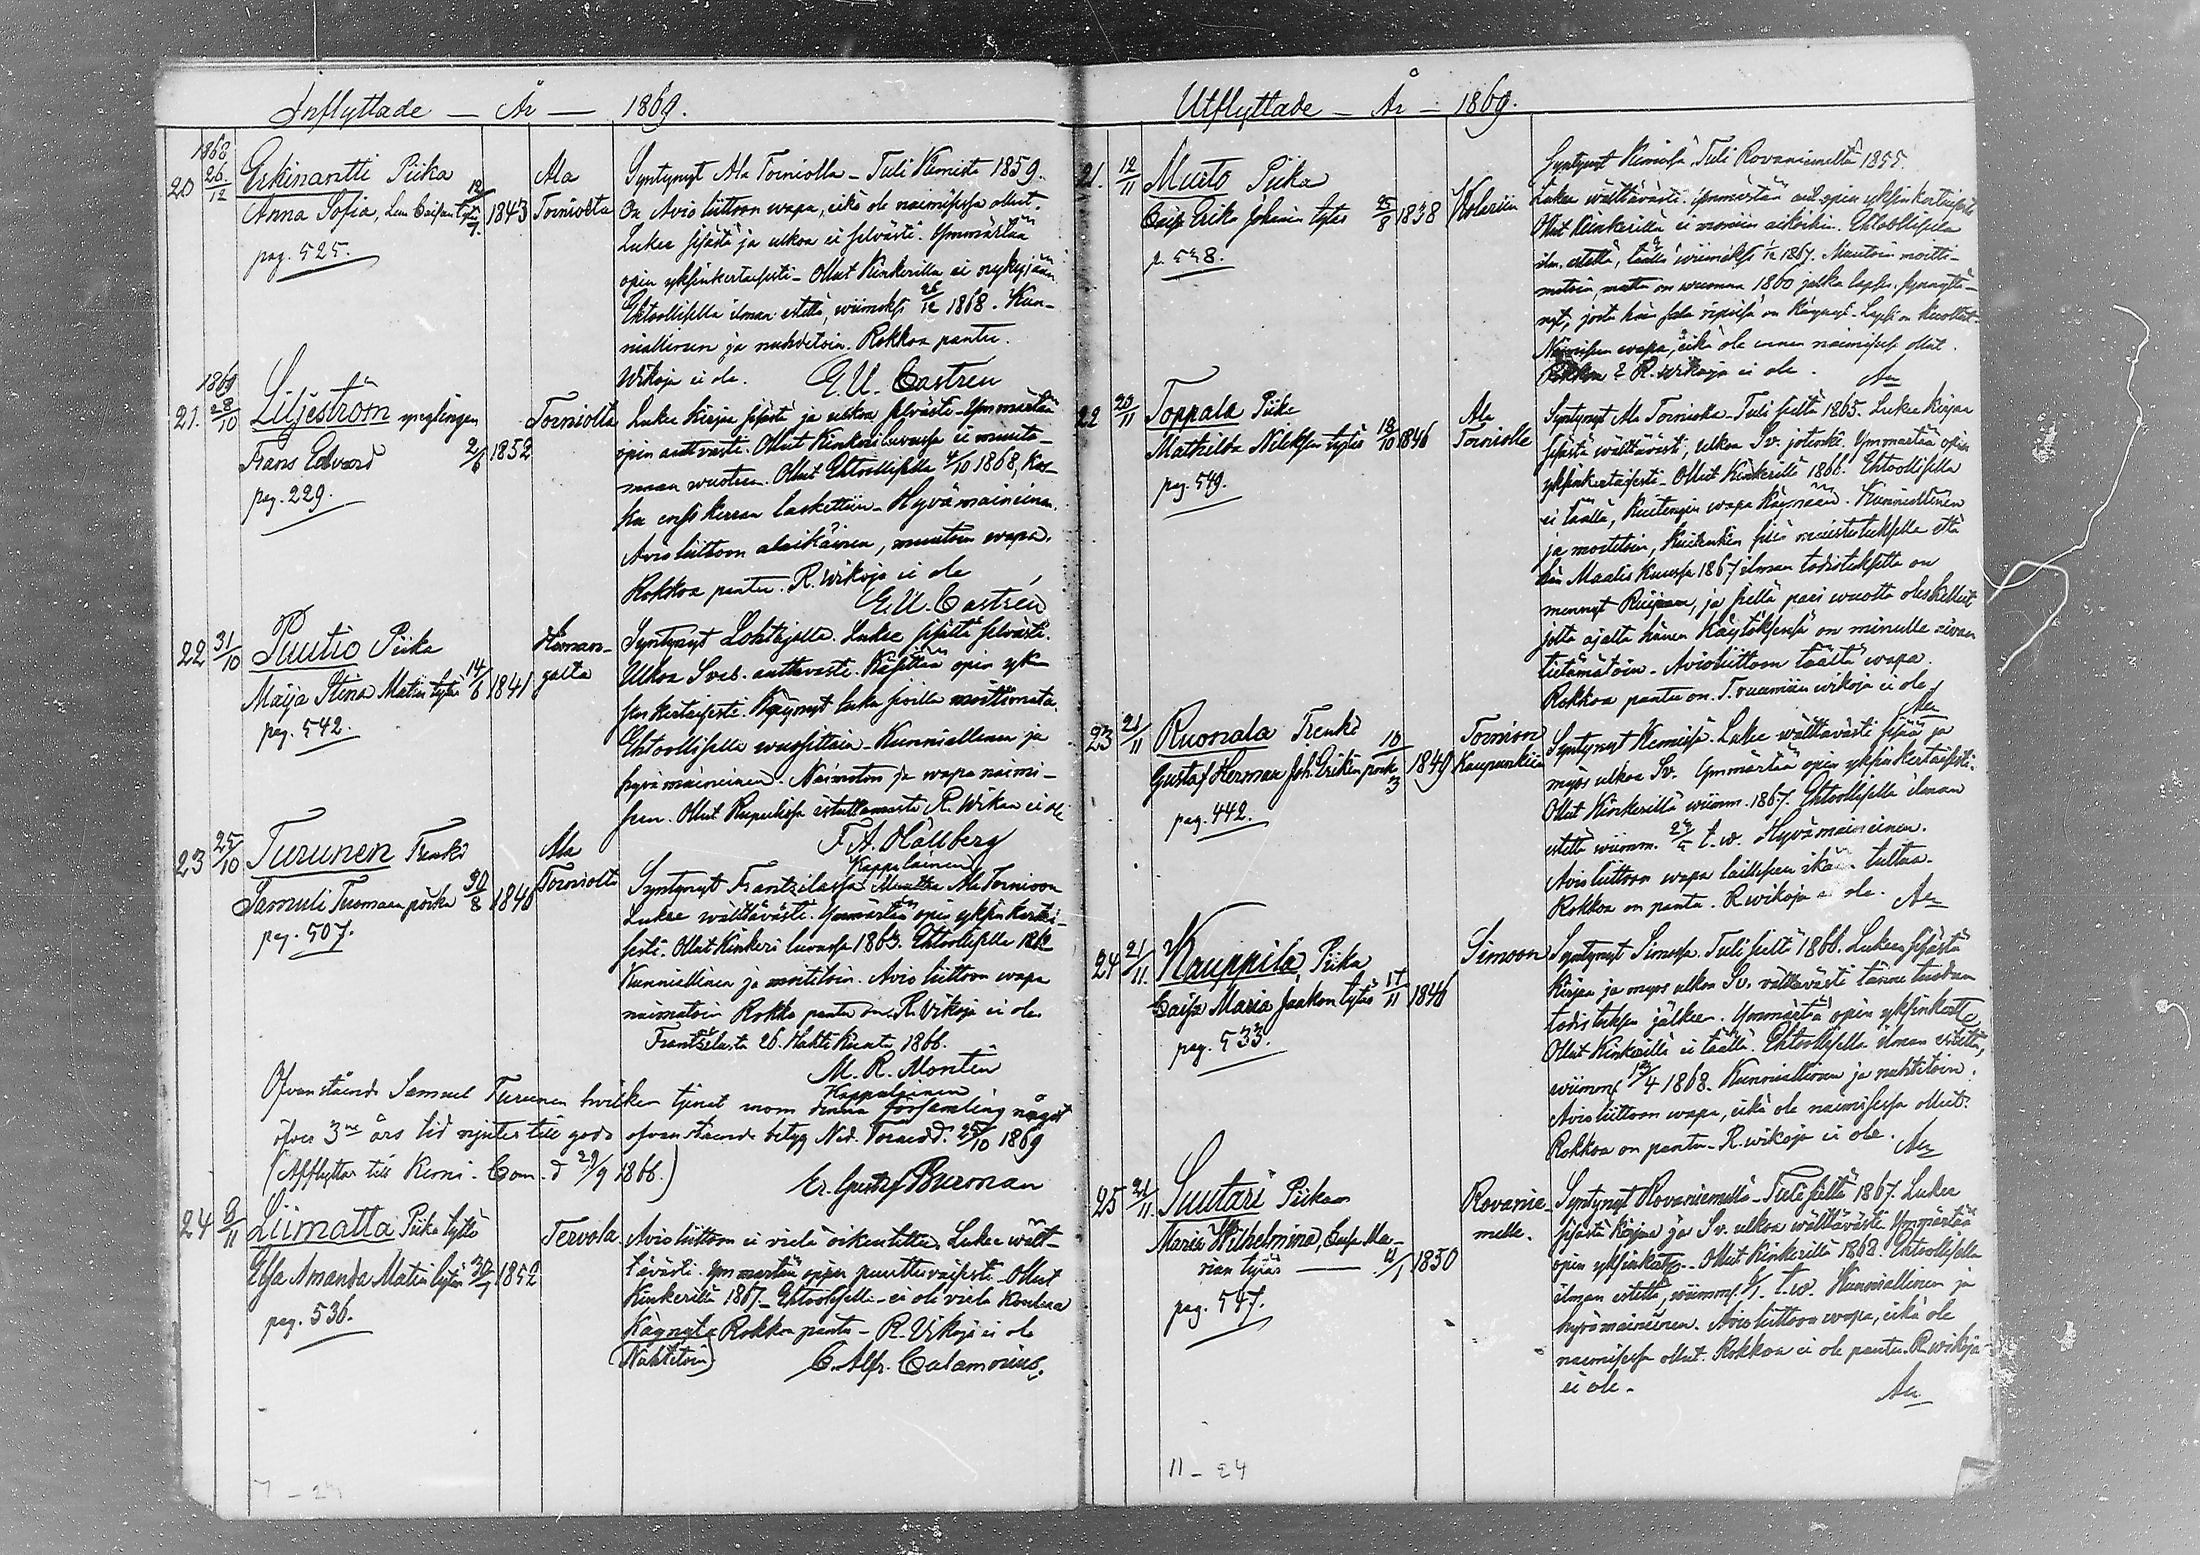 Inflyttade — År — 1869.
1868
20 26/12 Erkinantti Piika
Anna Sofia, Leen Caisan tytär 12/7 1843
pag. 525.
Ala
Torniolta
Syntynyt Ala Torniolla – Tuli Kemistä 1859.
On Avioliittoon wapa, eikä ole naimisessa ollut.
Lukee sisästä ja ulkoa ei selvästi. Ymmärtää
opin yksinkertaisesti – Ollut Kinkerillä ei nykyjään
Ehtoollisella ilman estettä, wiimeksi 26/12 1868. Kun-
niallinen ja nuhdetoin. Rokkoa pantu.
Wikoja ei ole. G. U. Castrén
1869
21. 28/10 Liljeström ynglingen
Frans Edvard 2/6 1852
pag. 229.
Torniolta
Lukee Kirjaa sisästä ja ulkoa selvästi – Ymmärtää
opin auttavasti. Ollut Kinkeriluvussa ei muuta-
maan wuoteen. Ollut Ehtoollisella 4/10 1868, Kos-
ka ensi kerran laskettiin – Hyvämaineinen.
Avioliittoon alaikäinen, muutoin wapa.
Rokkoa pantu. R. wikoja ei ole
G. U. Castrén
22 31/10 Puutio Piika
Maija Stina Matin tytär 14/6 1841
pag. 542.
Haman-
galta
Syntynyt Lohtajalla. Lukee sisältä selvästi.
Ulkoa Sveb. auttavasti. Käsittää opin yk-
sinkertaisesti. Käynyt luku sioilla moittimata.
Ehtoollisella wuosittain – Kunniallinen ja
hyvämaineinen. Naimaton ja wapa naimi-
seen. Ollut Rupulissa istuttamasta R. Wikaa ei ole
F. A. Hällberg
Kappalainen
23 25/10 Turunen Trenki
Samuli Tuomaan poika 30/8 1840
pag. 507.
Ala
Torniolta
Syntynyt Frantsilassa Muutta Ala Tornioon
Lukee wälttävästi. Ymmärtää opin yksinkertai-
sesti. Ollut Kinkeri luvussa 1863. Ehtoollisella 1862
Kunniallinen ja moititoin. Avioliittoon wapa
naimatoin Rokko pantu on. R. Vikoja ei ole.
Frantsilasta 26. Huhti Kuuta 1866.
M. R. Montin
Kappalainen
Ofvanstående Samuel Turunen hvilken tjenat inom denna församling något
öfver 3ne års tid njuter till godo ofvanstående betyg Ned. Torneå d. 25/10 1869
(Afflyttar till Kemi. Com. d 29/9 1866.) Er. Gustaf Burman
24 9/11 Liimatta Piika tyttö
Elsa Amanda Matin tytär 30/7 1852
pag. 536.
Tervola
Avioliittoon ei vielä oikeutettu. Lukee wält-
tävästi. Ymmärtää oppia puuttuvaisesti – Ollut
Kinkerillä 1867 – Ehtoolisella – ei ole vielä koulua
käynyt. Rokkoa pantu – R. Vikoja ei ole
(Nuhtetoin) C. Alfr. Calamnius.
Utflyttade – År – 1869.
21. 12/11 Muoto Piika
Caisa Erika Johanin tytär 25/8 1838
p. 548.
Kolariin
Syntynyt Kemissä. Tuli Rovaniemeltä 1855.
Lukee wälttävästi. Ymmärtää opin yksinkertaisesti
Ollut Kinkerillä ei moniin aikoihin. Ehtoollisella
ilm. estettä, täällä wiimeksi 1867. Muutoin moitti-
matoin, mutta on wuonna 1860 jalka lapsen synnyttä-
nyt, josta hän sala ripissä on Käynyt. Lapsi on kuollut.
Naimiseen wapa, eikä ole ennen naimisessa ollut.
Rokkoa ? R. wikoja ei ole. Au
22 20/11 Toppala Piika
Mathilda Nilsin tytär 18/10 1846
pag. 549.
Ala
Torniolle
Syntynyt Ala Torniolla – Tuli sieltä 1865. Lukee Kirjaa
sisästä wälttävästi, ulkoa Sv. jotenki. Ymmärtää opin
yksinkertaisesti – Ollut Kinkerillä 1866. Ehtoollisella
ei täällä, Kuitengin wapa Käymään. Kunniallinen
ja moititoin, Kuitenkin siis muistutuksella että
hän Maalis Kuussa 1867 ilman todistuksetta on
mennyt Ruijaan, ja siellä pari wuotta oleskellut
jolta ajalta hänen Käytöksensä on minulle aivan
tietämätöin – Avioliittoon täältä wapa.
Rokkoa pantu on. T. ruumiin wikoja ei ole.
Au
23 21/11 Ruonala Trenki
Gustaf Herman Joh. Erikin poik. 10/3 1849
pag. 442.
Tornion
Kaupunkiin
Syntynyt Kemissä. Lukee wälttävästi sisää ja
myös ulkoa Sv. Ymmärtää opin yksinkertaisesti.
Ollut Kinkerillä wiimm. 1867. Ehtoollisella ilman
estettä wiimm. t. w. Hyvämaineinen.
Avioliittoon wapa lailliseen ikään tultua.
Rokkoa on pantu. R. wikoja ei ole. Au
24 21/11. Kauppila, Piika
Caisa Maria Jaakon tytär 17/11 1846
pag. 533.
Simoon
Syntynyt Simossa. Tuli sieltä 1868. Lukee sisästä
Kirjaa ja myös ulkoa Sv. wälttävästi tänne tuodun
todistuksen jälkeen. Ymmärtää opin yksinkert.
Ollut Kinkerillä ei täällä. Ehtoollisella ilman estettä,
wiimm. 12/4 1868. Kunniallinen ja nuhtetoin.
Avioliittoon wapa, eikä ole naimisessa ollut.
Rokkoa on pantu – R. wikoja ei ole. Au
25 21/11. Suutari Piika
Maria Wilhelmina, Caisa Ma-
rian tytär — 4/1 1850
pag. 547.
Rovanie-
melle.
Syntynyt Rovaniemellä – Tuli sieltä 1867. Lukee
sisästä Kirjaa ja Sv. ulkoa wälttävästi. Ymmärtää
opin yksinkert. – Ollut Kinkerillä 1868. Ehtoollisella
ilman estettä, wiimm. t. w. Kunniallinen ja
hyvämaineinen. Avioliittoon wapa, eikä ole
naimisessa ollut. Rokkoa ei ole pantu. R. wikoja
ei ole – Au
11 – 24